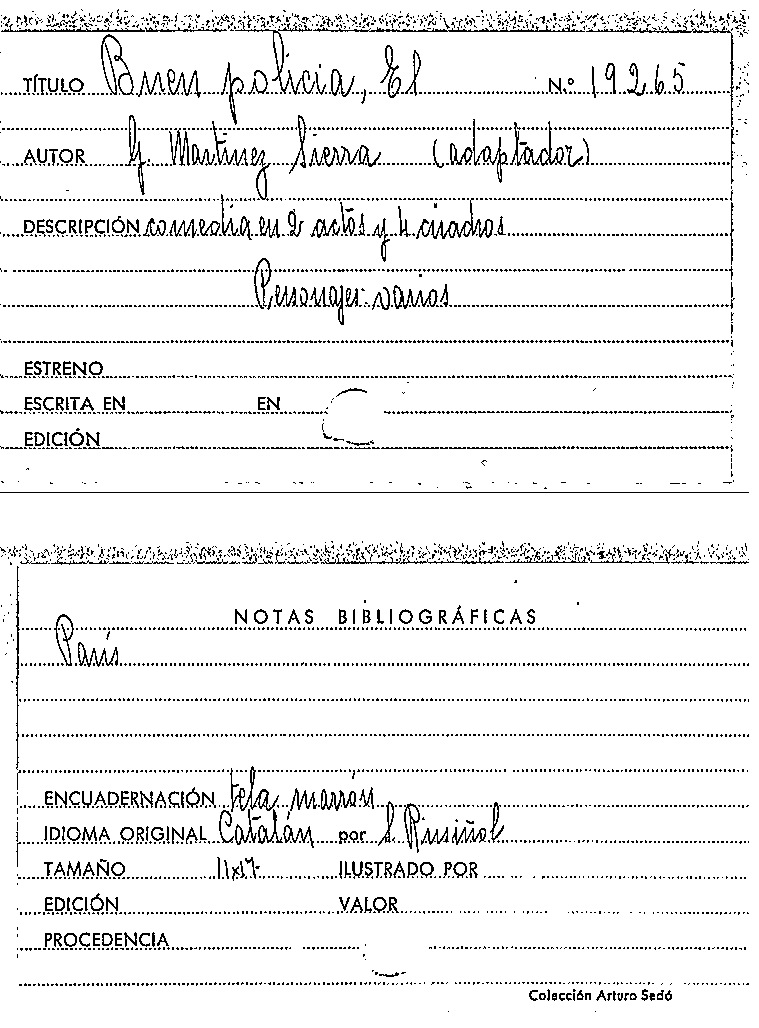 TÍTULO Buen policia, El N.º 19265
AUTOR G. Martinez Sierra (adaptador)
DESCRIPCIÓN comedia en 2 actos y 4 cuadros
Personajes: varios
ESTRENO
ESCRITA EN EN
EDICIÓN
NOTAS BIBLIOGRÁFICAS
París
ENCUADERNACIÓN tela marrón
IDIOMA ORIGINAL Catalán por S. Rusiñol
TAMAÑO 11x17 ILUSTRADO POR
EDICIÓN VALOR
PROCEDENCIA
Colección Arturo Sedó